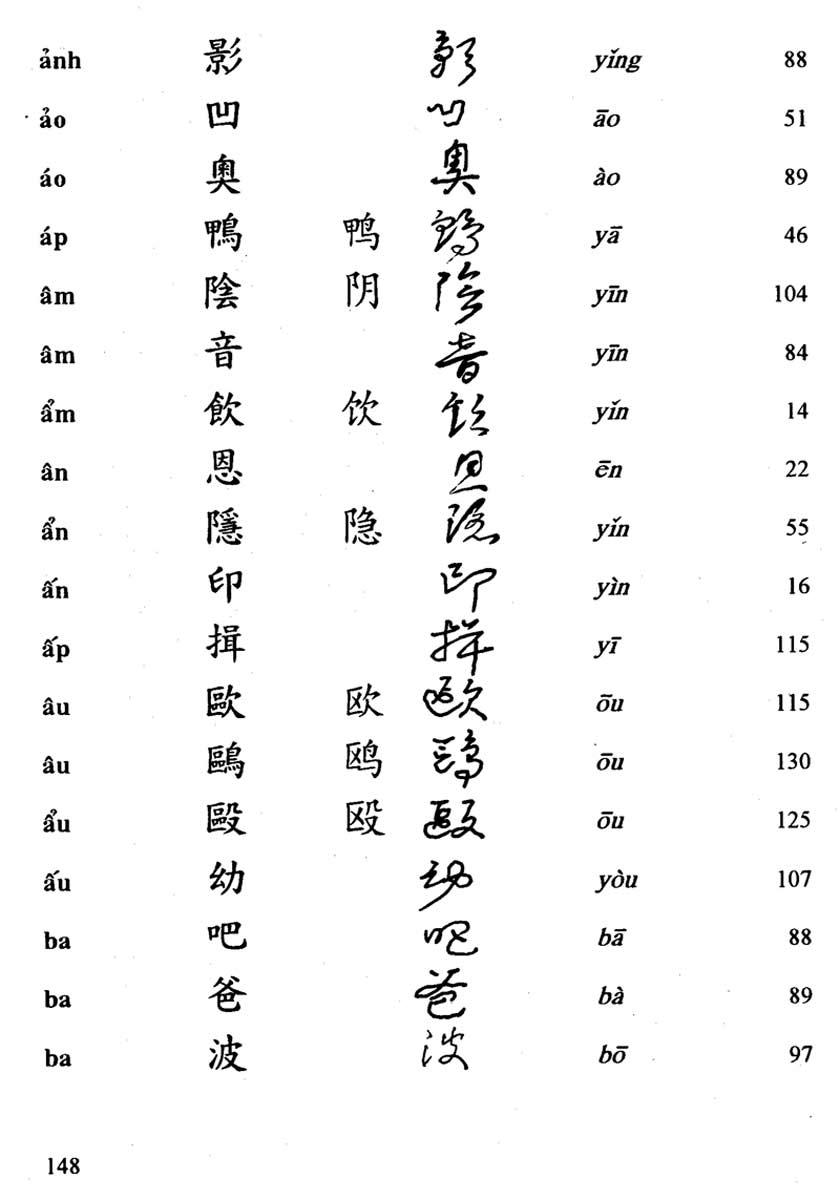 ảnh 影 影 yǐng 88
ảo 凹 凹 āo 51
áo 奧 奥 ào 89
áp 鴨 鸭 鴨 yā 46
âm 陰 阴 陰 yīn 104
âm 音 音 yīn 84
ẩm 飲 饮 飲 yǐn 14
ân 恩 恩 ēn 22
ẩn 隱 隐 隱 yǐn 55
ấn 印 印 yìn 16
ấp 揖 揖 yī 115
âu 歐 欧 歐 ōu 115
âu 鷗 鸥 鷗 ōu 130
ẩu 毆 殴 毆 ōu 125
ấu 幼 幼 yòu 107
ba 吧 吧 bā 88
ba 爸 爸 bà 89
ba 波 波 bō 97
148